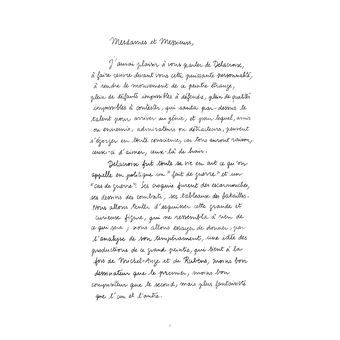 Mesdames et Messieurs,
J'aurai plaisir à vous parler de Delacroix,
à faire revivre devant vous cette puissante personnalité,
à rendre le mouvement de ce peintre étrange,
plein de défauts impossibles à défendre, plein de qualités
impossibles à contester, qui sauta par-dessus le
talent pour arriver au génie, et pour lequel, amis
ou ennemis, admirateurs ou détracteurs, peuvent
s'égorger en toute conscience, car tous auront raison,
ceux-ci d'aimer, ceux-là de haïr.
Delacroix fut toute sa vie en art ce qu'on
appelle en politique un "fait de guerre" et un
"cas de guerre". Ses croquis furent des escarmouches,
ses dessins des combats, ses tableaux des batailles.
Nous allons tenter d'esquisser cette grande et
curieuse figure, qui ne ressembla à rien de
ce qui fut ; nous allons essayer de donner, par
l'analyse de son tempérament, une idée des
productions de ce grand peintre, qui tient à la
fois de Michel-Ange et de Rubens, moins bon
dessinateur que le premier, moins bon
compositeur que le second, mais plus fantaisiste
que l'un et l'autre.